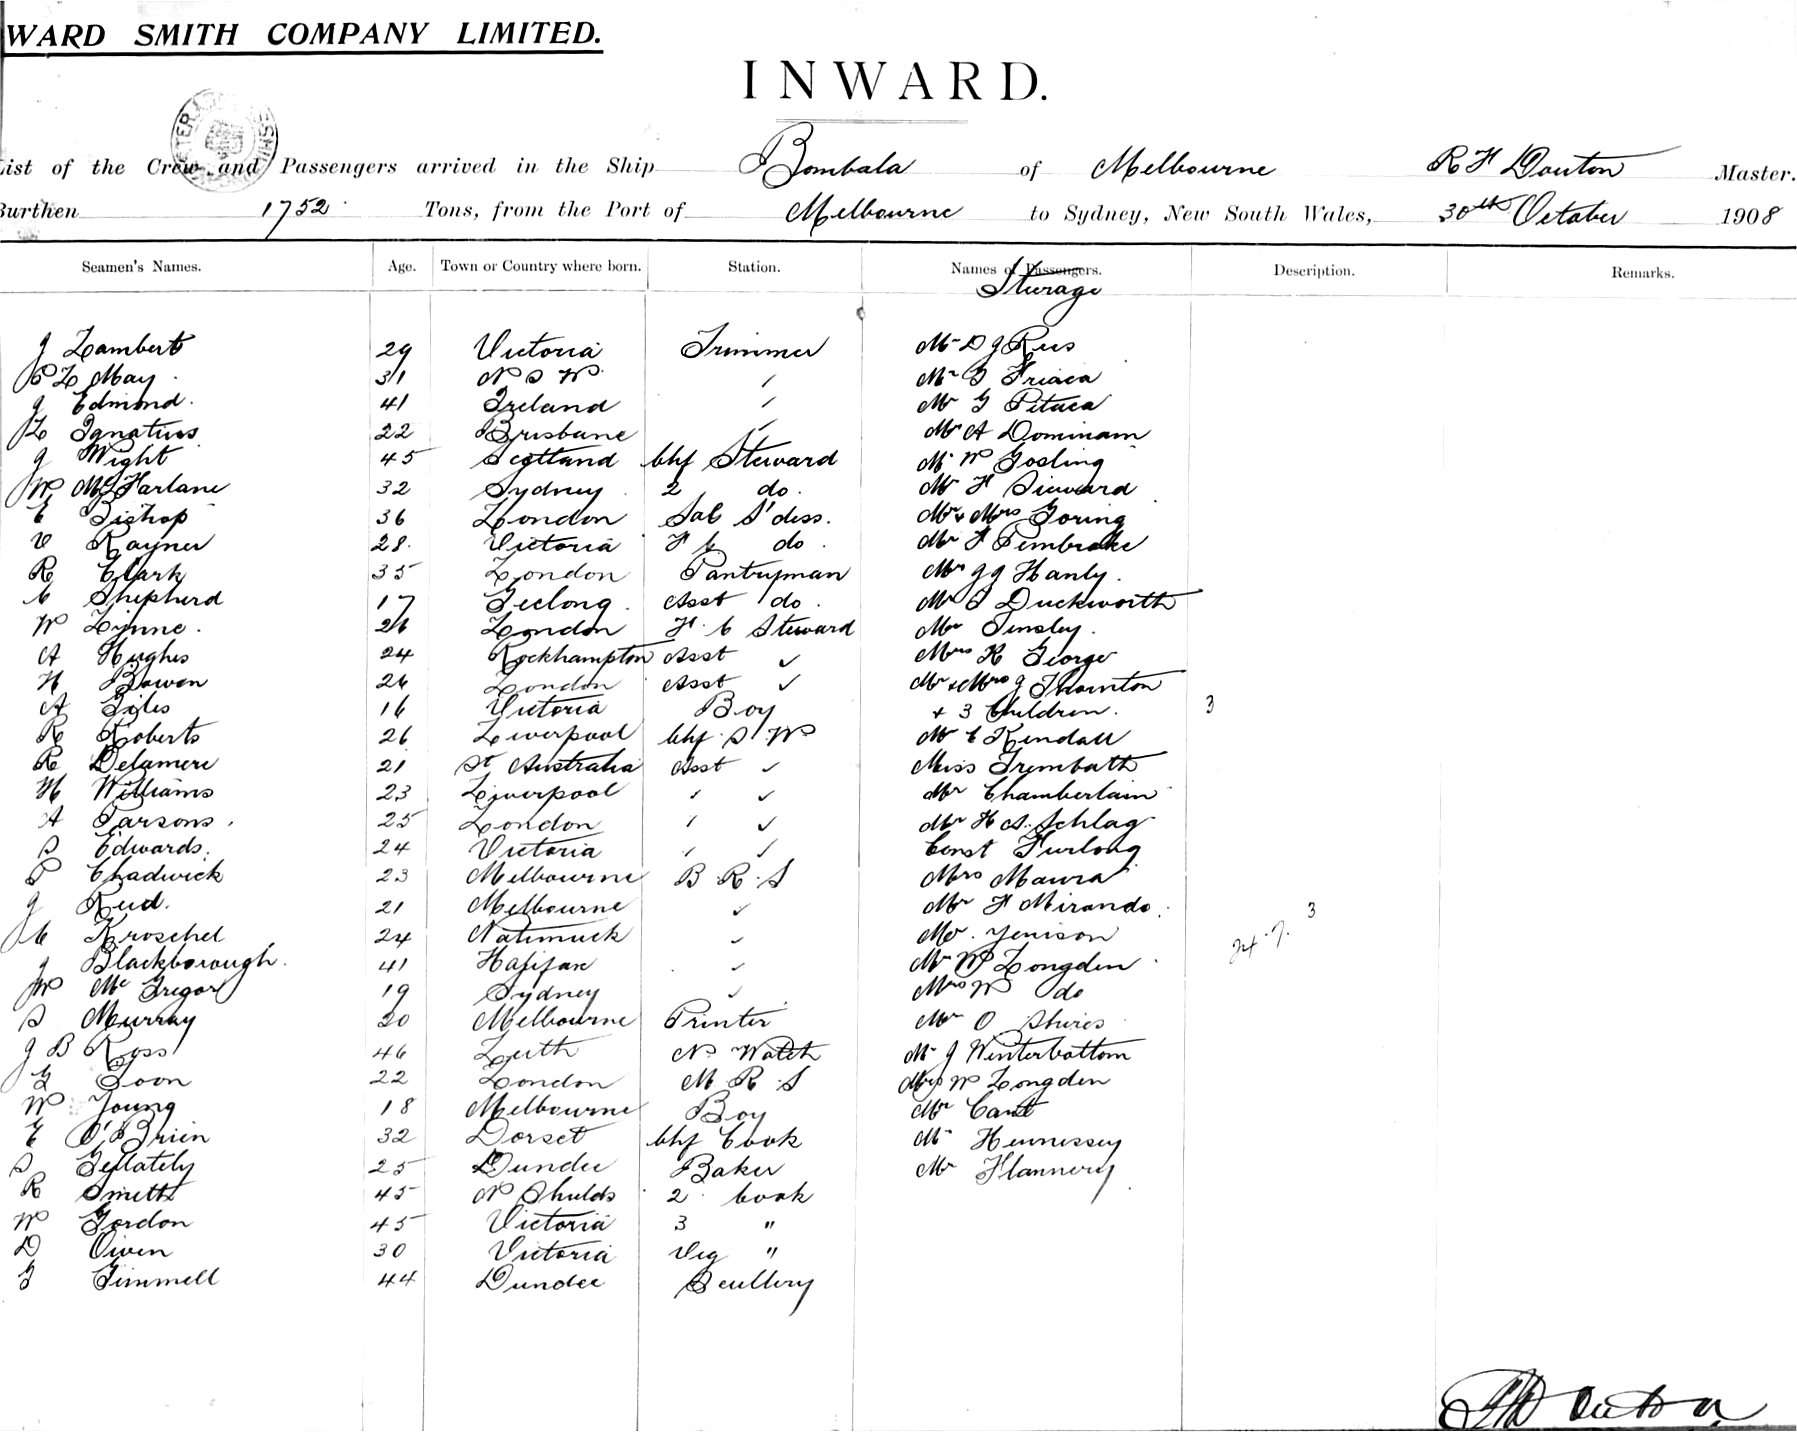 WARD SMITH COMPANY LIMITED.
INWARD.
List of the Crew and Passengers arrived in the Ship Bombala of Melbourne R H Douton Master.
Burthen 1752 Tons, from the Port of Melbourne to Sydney, New South Wales, 30th October 1908
Seamen's Names. Age. Town or Country where born. Station. Names of Passengers. Description. Remarks.
Sturage
J Lambert 29 Victoria Trimmer Mr D J Rees
P L May 31 N S W " Mr G Friaca
J Edmond 41 Ireland " Mr G Pituca
L Ignatius 22 Brisbane " Mr A Dominam
J Wight 45 Scotland Chf Steward Mr W Gosling
W McFarlane 32 Sydney 2 do. Mr H Sieward
E Bishop 36 London Sal S'dess. Mr & Mrs Goring
V Rayner 28 Victoria F C do. Mr F Pembroke
R Clark 35 London Pantryman Mr J J Hanly.
C Shepherd 17 Geelong. Asst do. Mr S Duckworth
W Lynne. 26 London F. C Steward Mr Tinsley.
A Hughes 24 Rockhampton Asst ✓ Mrs K George
H Bowen 26 London Asst ✓ Mr & Mrs J Thornton
A Giles 16 Victoria Boy + 3 Children. 3
R Roberts 26 Liverpool Chf S W Mr C Kendall
R Delamere 21 St Australia Asst ✓ Miss Trembath
H Williams 23 Liverpool " ✓ Mr Chamberlain
A Parsons. 25 London " ✓ Mr H A. Schlag
S Edwards. 24 Victoria " ✓ Const Furlong
P Chadwick 23 Melbourne B. R. S Mrs Maura
J Reid. 21 Melbourne ✓ Mr F Mirando. 3
C Kroschel 24 Natimuck ✓ Mr. Jenison 24. 7.
J Blackborough. 41 Halifax ✓ Mr W Longden
W McGregor 19 Sydney ✓ Mrs W do
S Murray 20 Melbourne Printer Mr O Shires
J B Ross 46 Leith N. Watch Mr J Winterbottom
G Toon 22 London M. R. S Mrs W Longden
W Young 18 Melbourne Boy Mr Cant
E O'Brien 32 Dorset Chf Cook Mr Hennessey
S Gellately 25 Dundee Baker Mr Flannery
R Smith 45 N Shields 2. Cook
W Gordon 45 Victoria 3 "
D Owen 30 Victoria Veg "
G Gimmell 44 Dundee Scullery